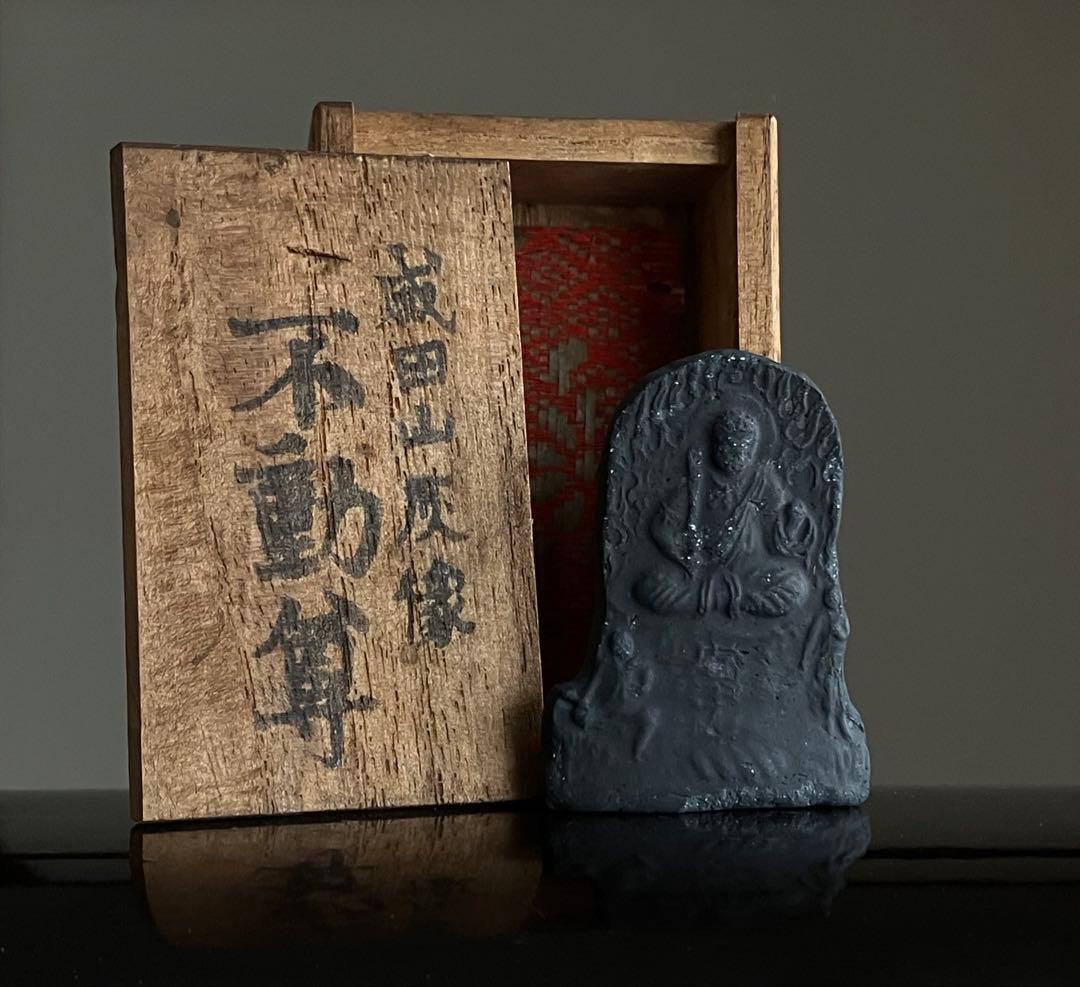 成田山灰像
不動尊